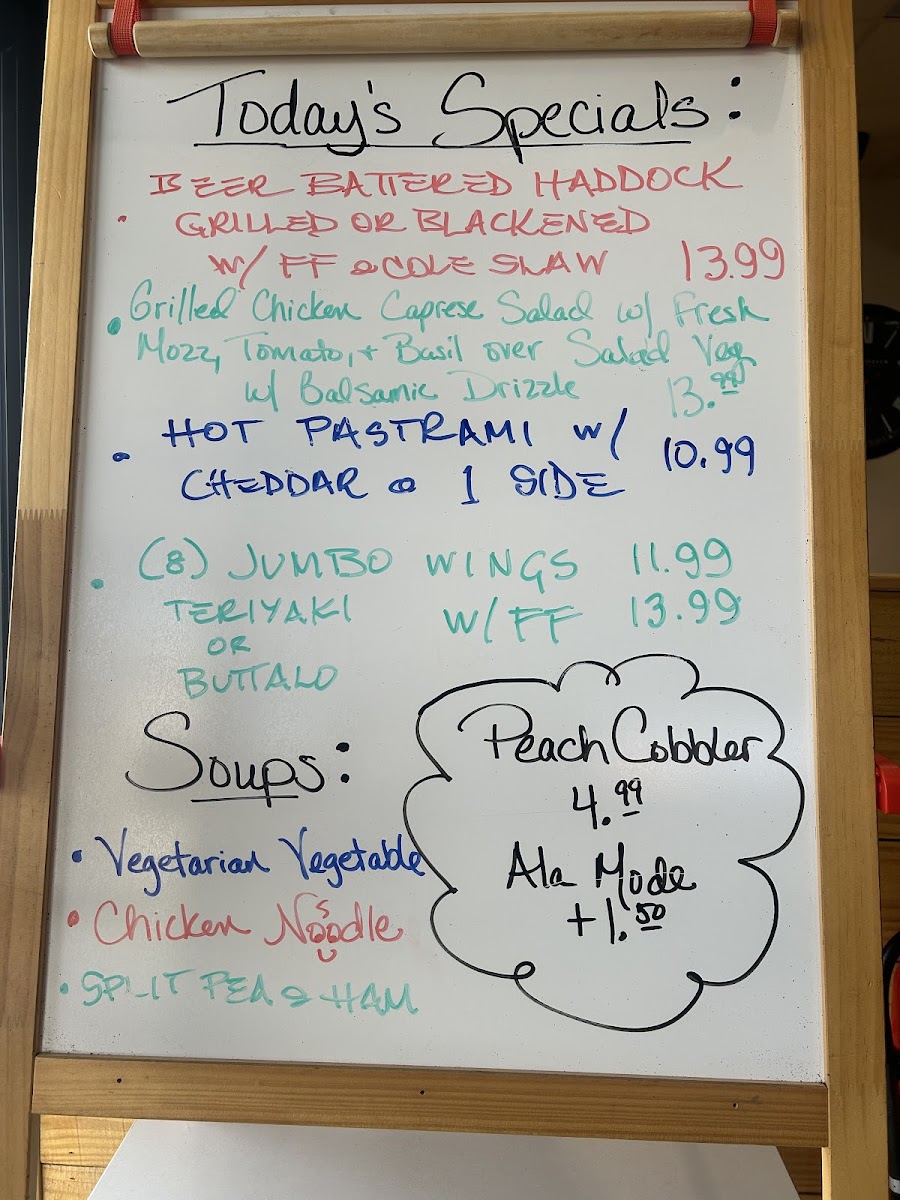 Today's Specials:
BEER BATTERED HADDOCK
• GRILLED OR BLACKENED
W/ FF & COLE SLAW 13.99
• Grilled Chicken Caprese Salad w/ Fresh
Mozz, Tomato, + Basil over Salad Veg
w/ Balsamic Drizzle 13.99
• HOT PASTRAMI W/ 10.99
CHEDDAR & 1 SIDE
• (8) JUMBO WINGS 11.99
TERIYAKI W/FF 13.99
OR
BUTTALO
Soups:
• Vegetarian Vegetable
• Chicken Noodle
• SPLIT PEA & HAM
Peach Cobbler
4.99
Ala Mode
+1.50